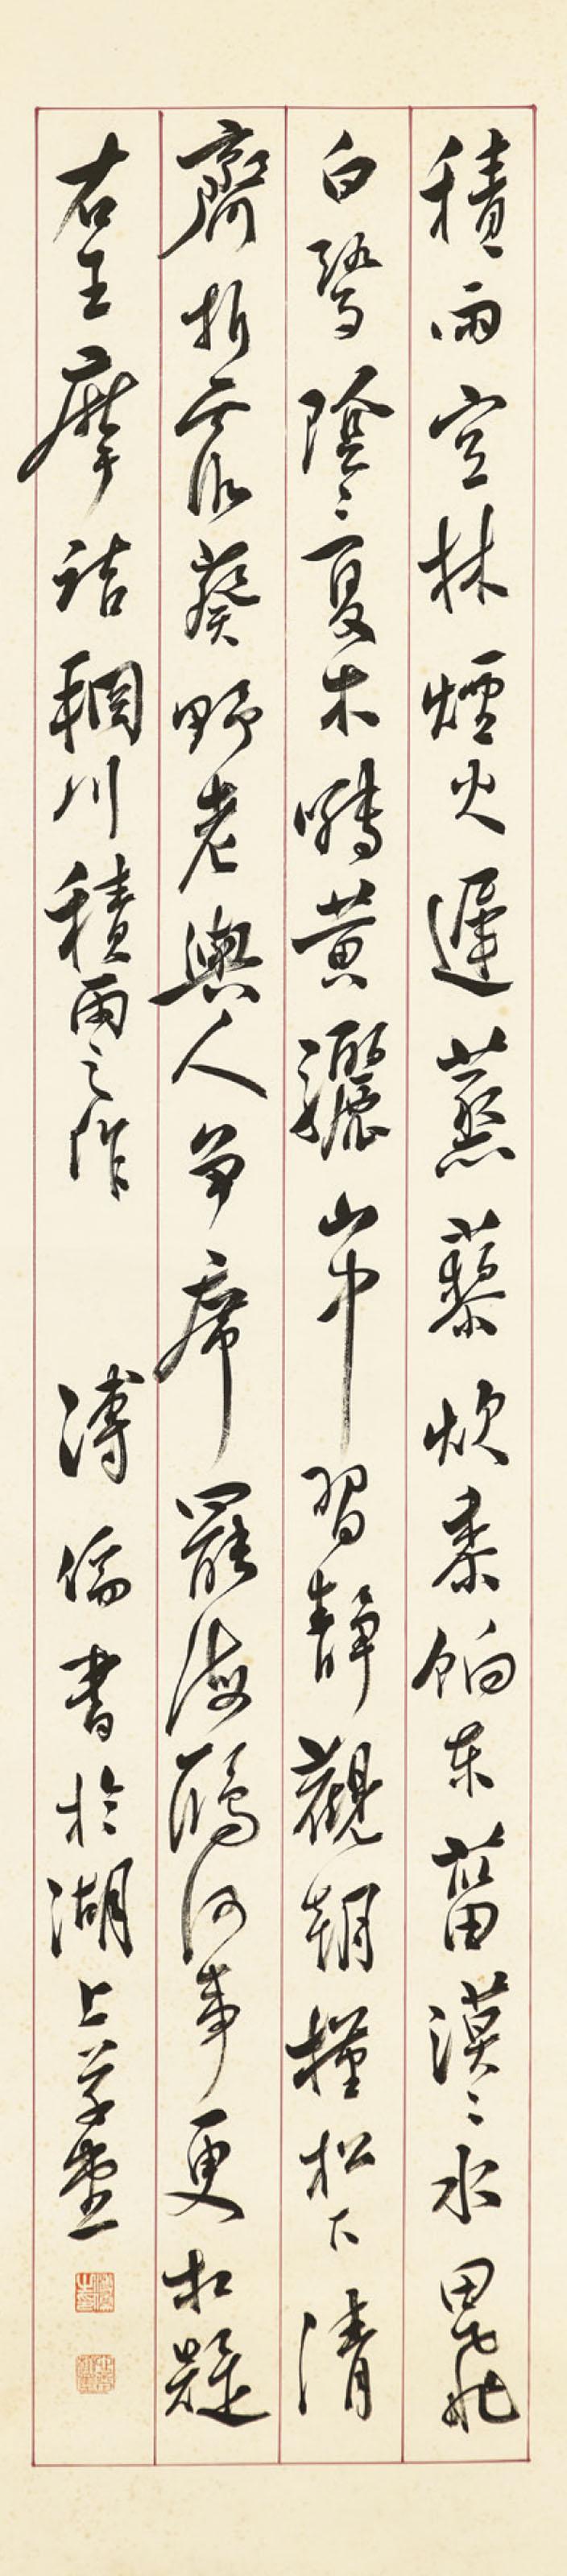 積雨空林煙火遲蒸藜炊黍餉東菑漠〻水田飛
白鷺陰〻夏木囀黃鸝山中習靜觀朝槿松下清
齋折露葵野老與人爭席罷海鷗何事更相疑
右王摩詰輞川積雨之作 溥儒書於湖上草堂